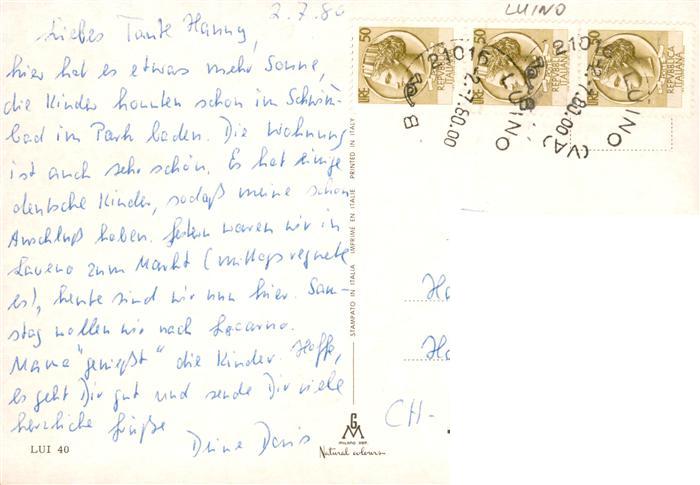 2.7.80
Liebes Tante Hanny,
hier hat es etwas mehr Sonne,
die Kinder konnten schon im Schwim-
bad im Park baden. Die Wohnung
ist auch sehr schön. Es hat einige
deutsche Kinder, sodaß meine schon
Anschluß haben. Gestern waren wir in
Laveno zum Markt (mittags regnete
es), heute sind wir nun hier. Sam-
stag wollen wir nach Locarno.
Mama "genießt" die Kinder. Hoffe,
es geht Dir gut und sende Dir viele
herzliche Grüße
Deine Doris
LUI 40
STAMPATO IN ITALIA IMPRIME EN ITALIE PRINTED IN ITALY
GM
MILANO DEP.
Natural colours
LUINO
50 LIRE REPVBBLICA ITALIANA
50 LIRE REPVBBLICA ITALIANA
50 LIRE REPVBBLICA ITALIANA
21016 LUINO
B
-2.-7.80.00
21016 LUINO (VA)
B
-2.-7.80.00
Ha
Ha
CH-